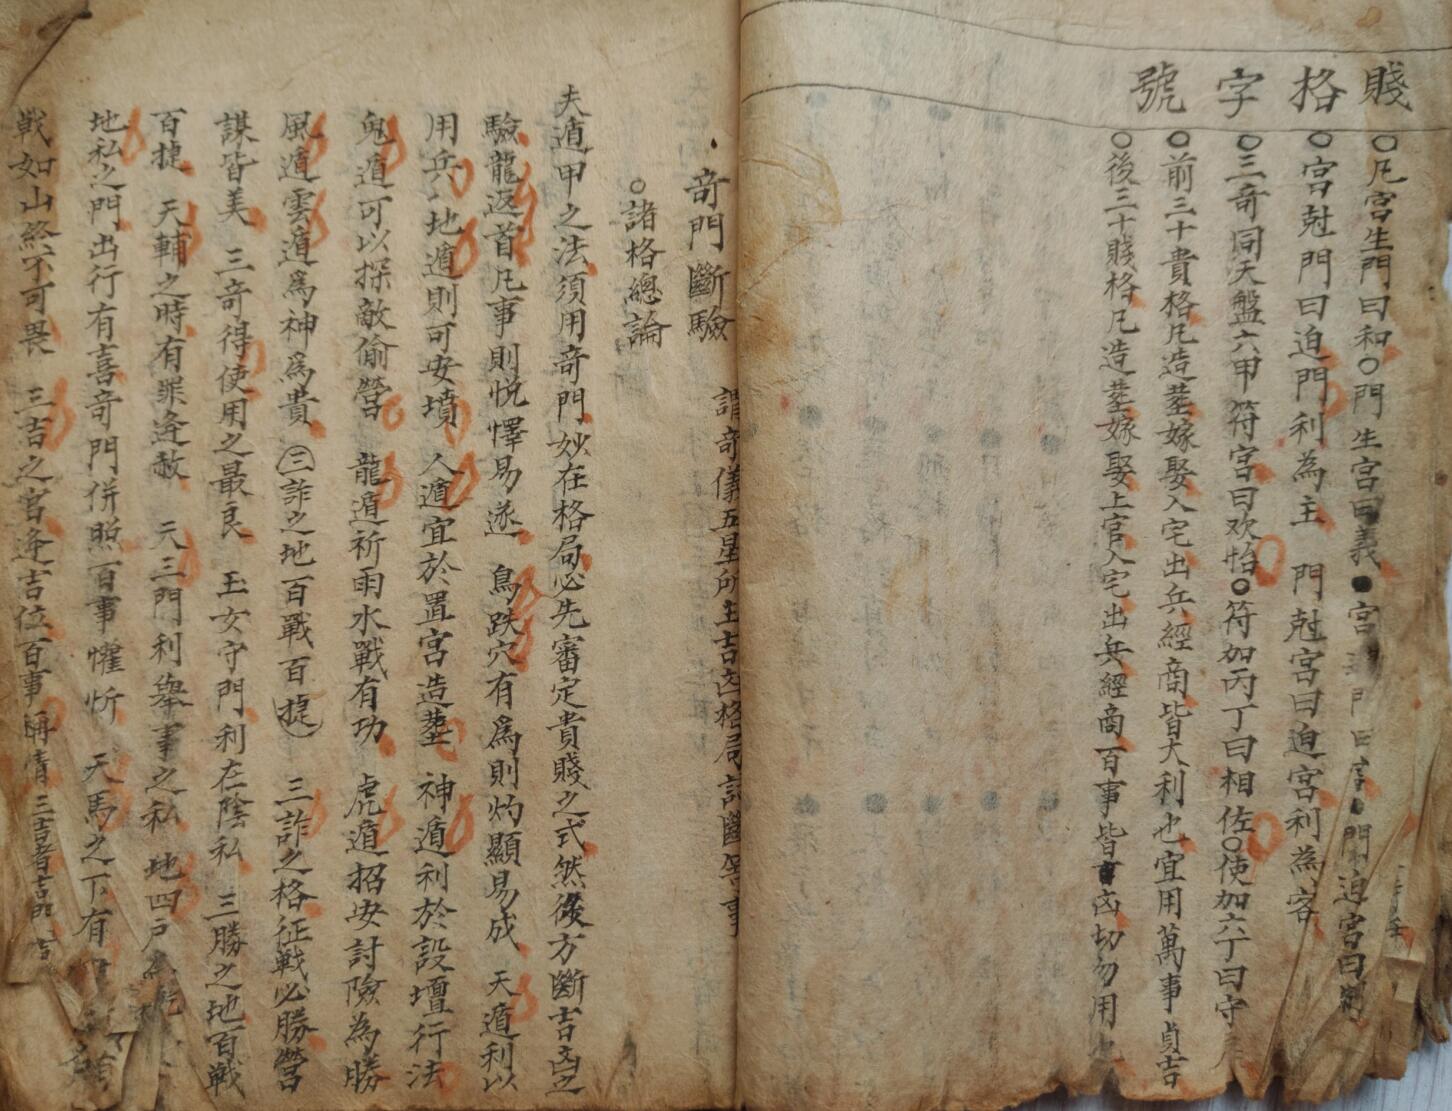 賤格字號
○凡宮生門曰和○門生宮曰義●宮門曰●門迫宮曰制
○宮尅門曰迫門利為主 門尅宮曰迫宮利為客
○三奇同天盤六甲符宮曰欢怡○符加丙丁曰相佐○使加六丁曰守
○前三十貴格凡造塟嫁娶入宅出兵經商皆大利也宜用萬事貞吉
○後三十賤格凡造塟嫁娶上官入宅出兵經商百事皆凶切勿用
奇門斷驗
謂奇儀五星所主吉凶格局
○諸格總論
夫遁甲之法須用奇門妙在格局必先審定貴賤之式然後方斷吉凶之
驗龍返首凡事則悅懌易遂 鳥跌穴有為則灼顯易成 天遁利以
用兵 地遁則可安墳 人遁宜於置宮造塟 神遁利於設壇行法
鬼遁可以探敵偷營 龍遁祈雨水戰有功 虎遁招安討險為勝
風遁雲遁爲神爲貴 三詐之地百戰百捷 三詐之格征戰必勝營
謀皆美 三奇得使用之最良 玉女守門利在陰私 三勝之地百戰
百捷 天輔之時有罪逢赦 天三門利舉事之私 地四戶為
地私之門出行有喜奇門併照百事懽忻 天馬之下有
戰如山終不可畏 三吉之宮逢吉位百事稱情三吉者吉門吉